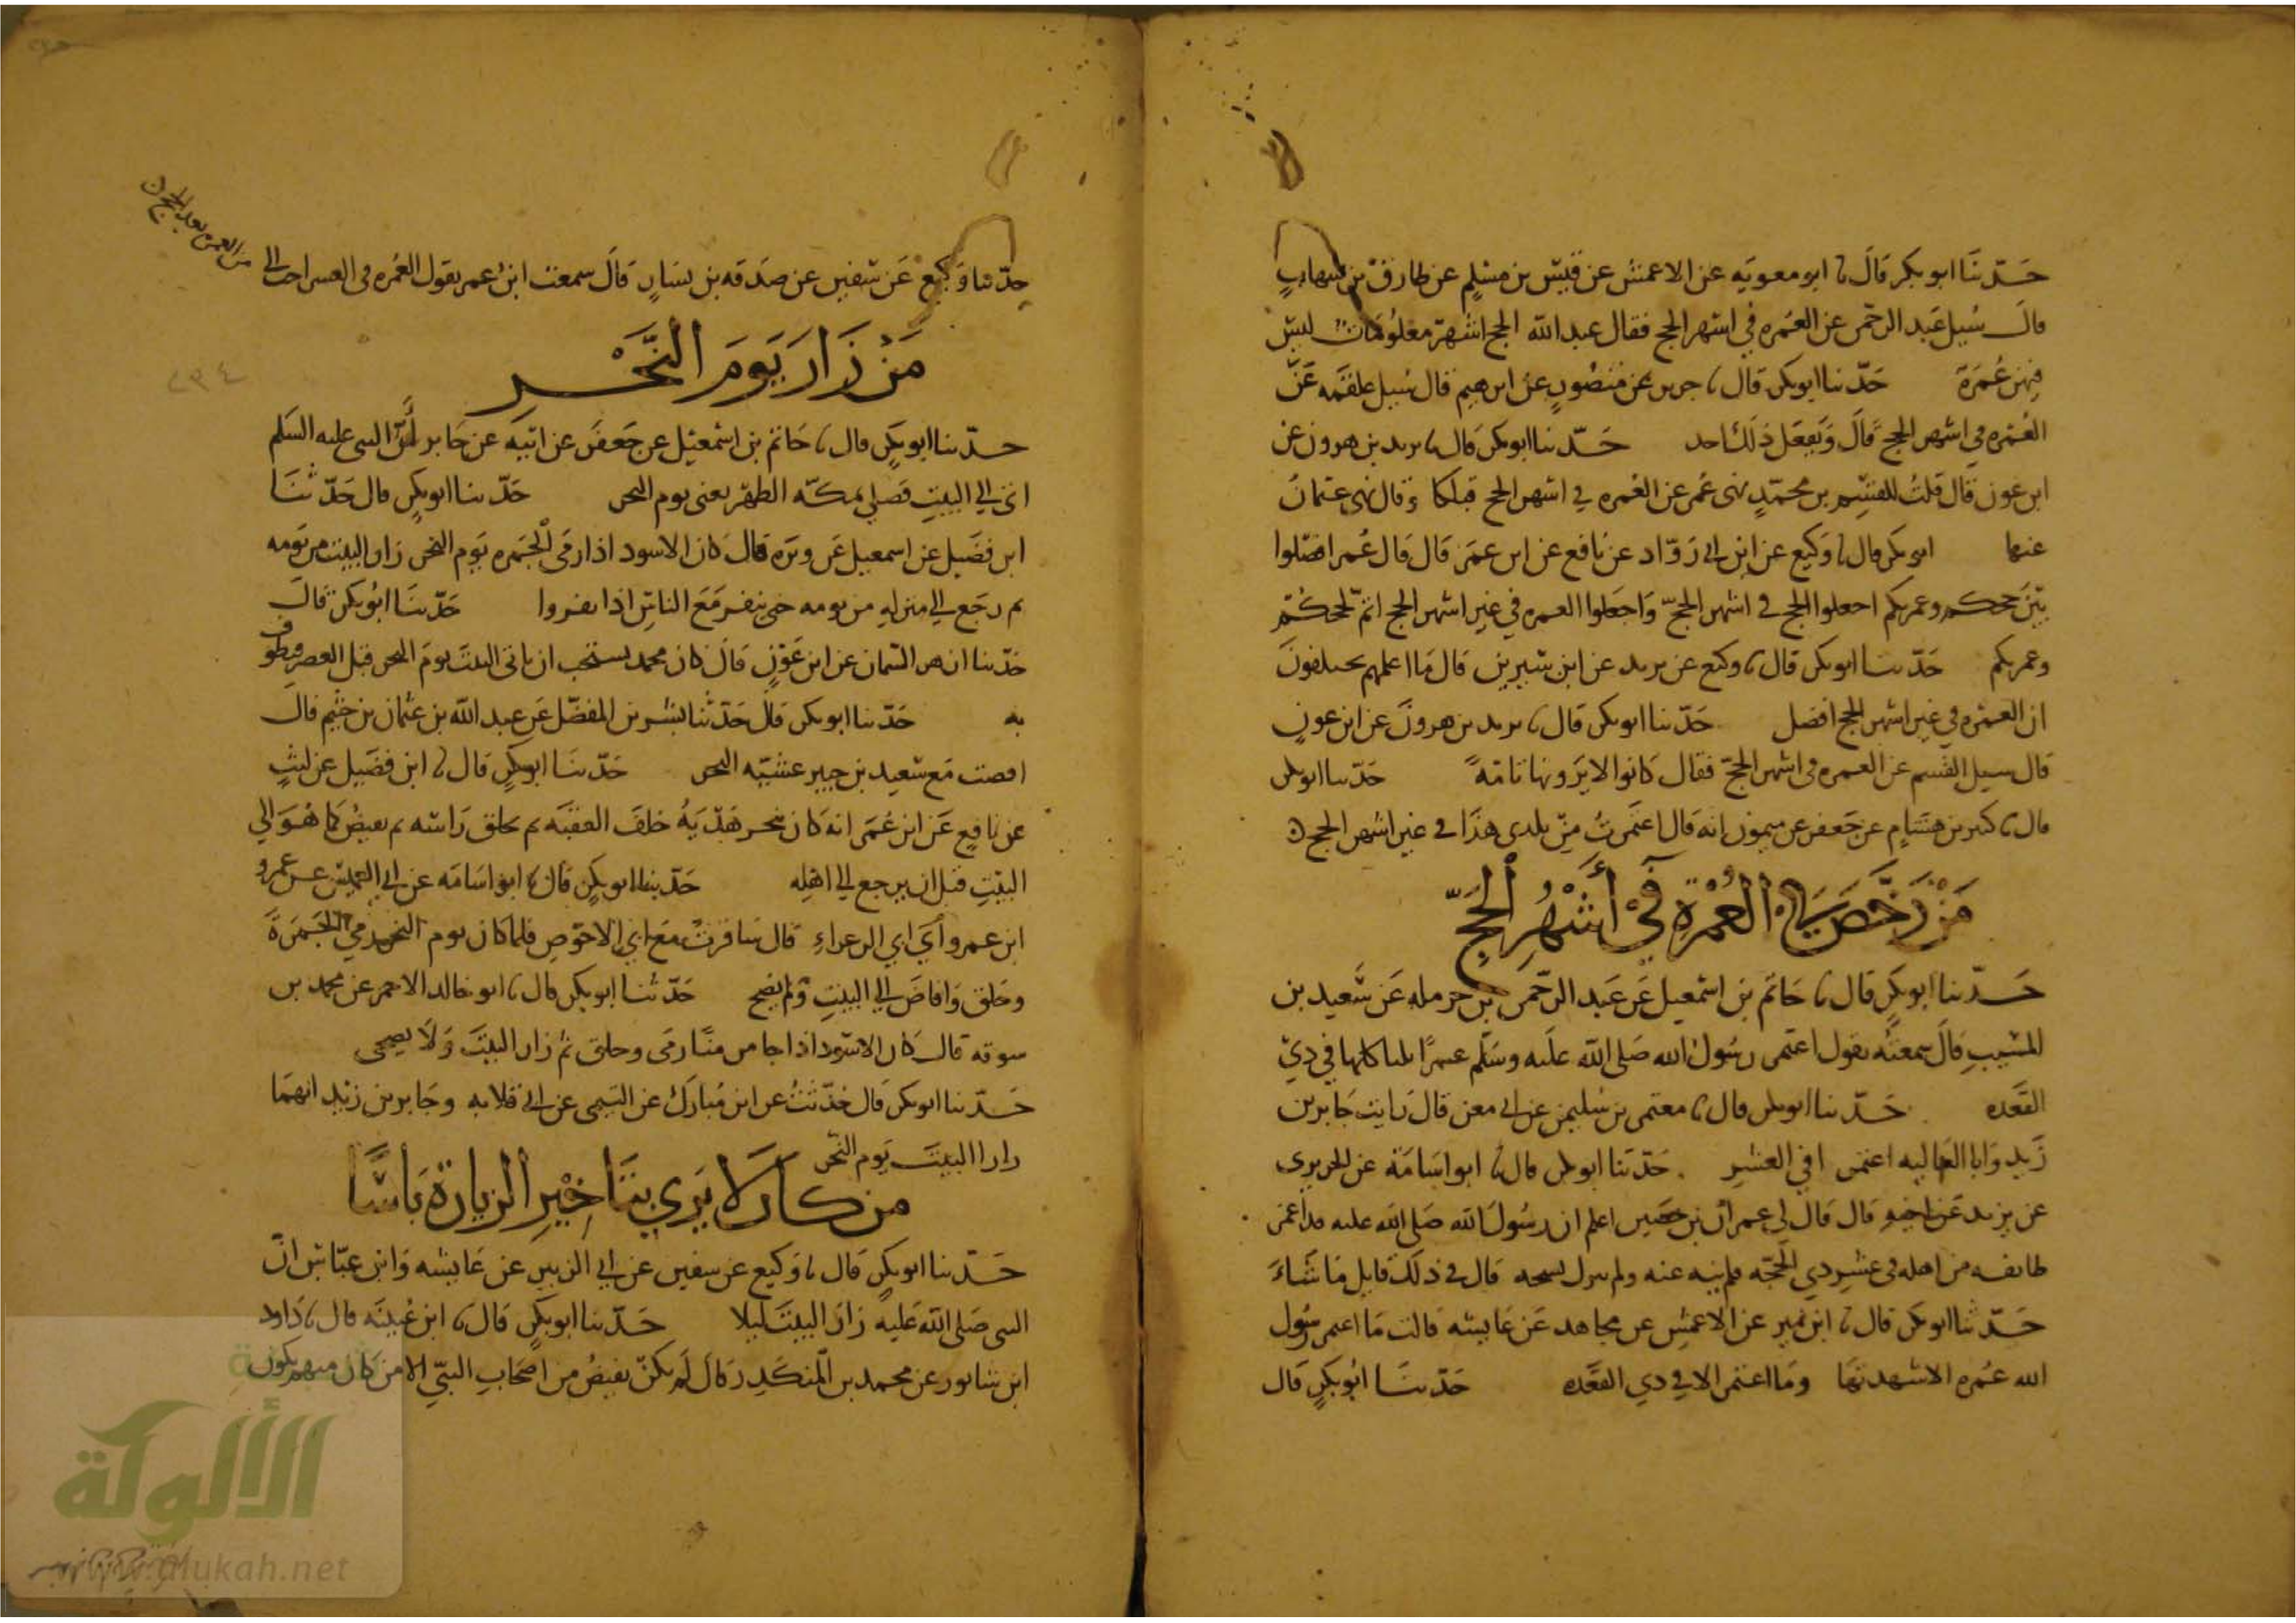 حدثنا ابو بكر قال نا ابو معويه عن الاعمش عن قيس بن مسلم عن طارق بن شهاب
قال سيل عبد الرحمن عن العمره في اشهر الحج فقال عبد الله الحج اشهر معلومات ليس
فيهن عمرة حدثنا ابو بكر قال نا جرير عن منصور عن ابرهيم قال سيل علقمه عن
العمره في اشهر الحج قال ويفعل ذلك احد حدثنا ابو بكر قال نا يزيد بن هرون عن
ابن عون قال قلت للقسم بن محمد نهى عمر عن العمره في اشهر الحج قال نهى عثمان
عنها ابو بكر قال نا وكيع عن ابن ابي رواد عن نافع عن ابن عمر قال قال عمر افصلوا
بين حجكم وعمرتكم اجعلوا الحج في اشهر الحج واجعلوا العمره في غير اشهر الحج اتم لحجكم
وعمرتكم حدثنا ابو بكر قال نا وكيع عن يزيد عن ابن سيرين قال ما اعلمهم يختلفون
ان العمره في غير اشهر الحج افضل حدثنا ابو بكر قال نا يزيد بن هرون عن ابن عون
قال سيل القسم عن العمره في اشهر الحج فقال كانوا لا يرونها تامة حدثنا ابو بكر
قال نا كثير بن هشام عن جعفر عن ميمون انه قال اعتمرت من بلدى هذا في غير اشهر الحج
من رخص في العمرة في أشهر الحج
حدثنا ابو بكر قال نا حاتم بن اسمعيل عن عبد الرحمن بن حرمله عن سعيد بن
المسيب قال سمعته يقول اعتمر رسول الله صلى الله عليه وسلم عمرا ثلثا كلها في ذي
القعده حدثنا ابو بكر قال نا معتمر بن سليمن عن ابي معن قال رايت جابر بن
زيد وابا العاليه اعتمرا في العشر حدثنا ابو بكر قال نا ابو اسامة عن الجريري
عن يزيد عن اخيه قال قال لي عمران بن حصين اعلم ان رسول الله صلى الله عليه قد اعمر
طائفه من اهله في عشر ذي الحجه فلم ينه عنه ولم ينزل نسخه قال في ذلك قايل ما شاء
حدثنا ابو بكر قال نا ابن نمير عن الاعمش عن مجاهد عن عايشه قالت ما اعتمر رسول
الله عمره الا شهدتها وما اعتمر الا في ذي القعده حدثنا ابو بكر قال
حدثنا وكيع عن سفين عن صدقه بن يسار قال سمعت ابن عمر يقول العمره في العشر احب الي
من العمره بعد الحج
من زار يوم النحر
٢٣٤
حدثنا ابو بكر قال نا حاتم بن اسمعيل عن جعفر عن ابيه عن جابر أن النبي عليه السلم
اتى الي البيت فصلى بمكه الظهر يعنى يوم النحر حدثنا ابو بكر قال حدثنا
ابن فضيل عن اسمعيل عن وبره قال كان الاسود اذا رمى الجمره يوم النحر زار البيت من يومه
ثم رجع الي منزله من يومه حتى ينفر مع الناس اذا نفروا حدثنا ابو بكر قال
حدثنا ازهر السمان عن ابن عون قال كان محمد يستحب ان ياتى البيت يوم النحر قبل العصر فيطوف
به حدثنا ابو بكر قال حدثنا بشر بن المفضل عن عبد الله بن عثمان بن خثيم قال
افضت مع سعيد بن جبير عشيه النحر حدثنا ابو بكر قال نا ابن فضيل عن ليث
عن نافع عن ابن عمر انه كان ينحر هديه خلف العقبه ثم يحلق راسه ثم يفيض كما هو الي
البيت قبل ان يرجع الي اهله حدثنا ابو بكر قال نا ابو اسامه عن ابي العميس عن عمرو
ابن عمرو أبي الزعراء قال سافرت مع ابي الاحوص فلما كان يوم النحر رمي الجمرة
وحلق وافاض الي البيت ولم يضح حدثنا ابو بكر قال نا ابو خالد الاحمر عن محمد بن
سوقه قال كان الاسود اذا جا من منا رمى وحلق ثم زار البيت ولا يضحى
حدثنا ابو بكر قال حدثت عن ابن مبارك عن التيمى عن ابي قلابه وجابر بن زيد انهما
زارا البيت يوم النحر
من كان لا يرى بتاخير الزيارة باسا
حدثنا ابو بكر قال نا وكيع عن سفين عن ابي الزبير عن عايشه وابن عباس ان
النبى صلى الله عليه زار البيت ليلا حدثنا ابو بكر قال نا ابن عيينه قال نا داود
ابن شابور عن محمد بن المنكدر قال لم يكن يفيض من اصحاب النبي الا من كان منهم يكون
الألوكة
www.alukah.net